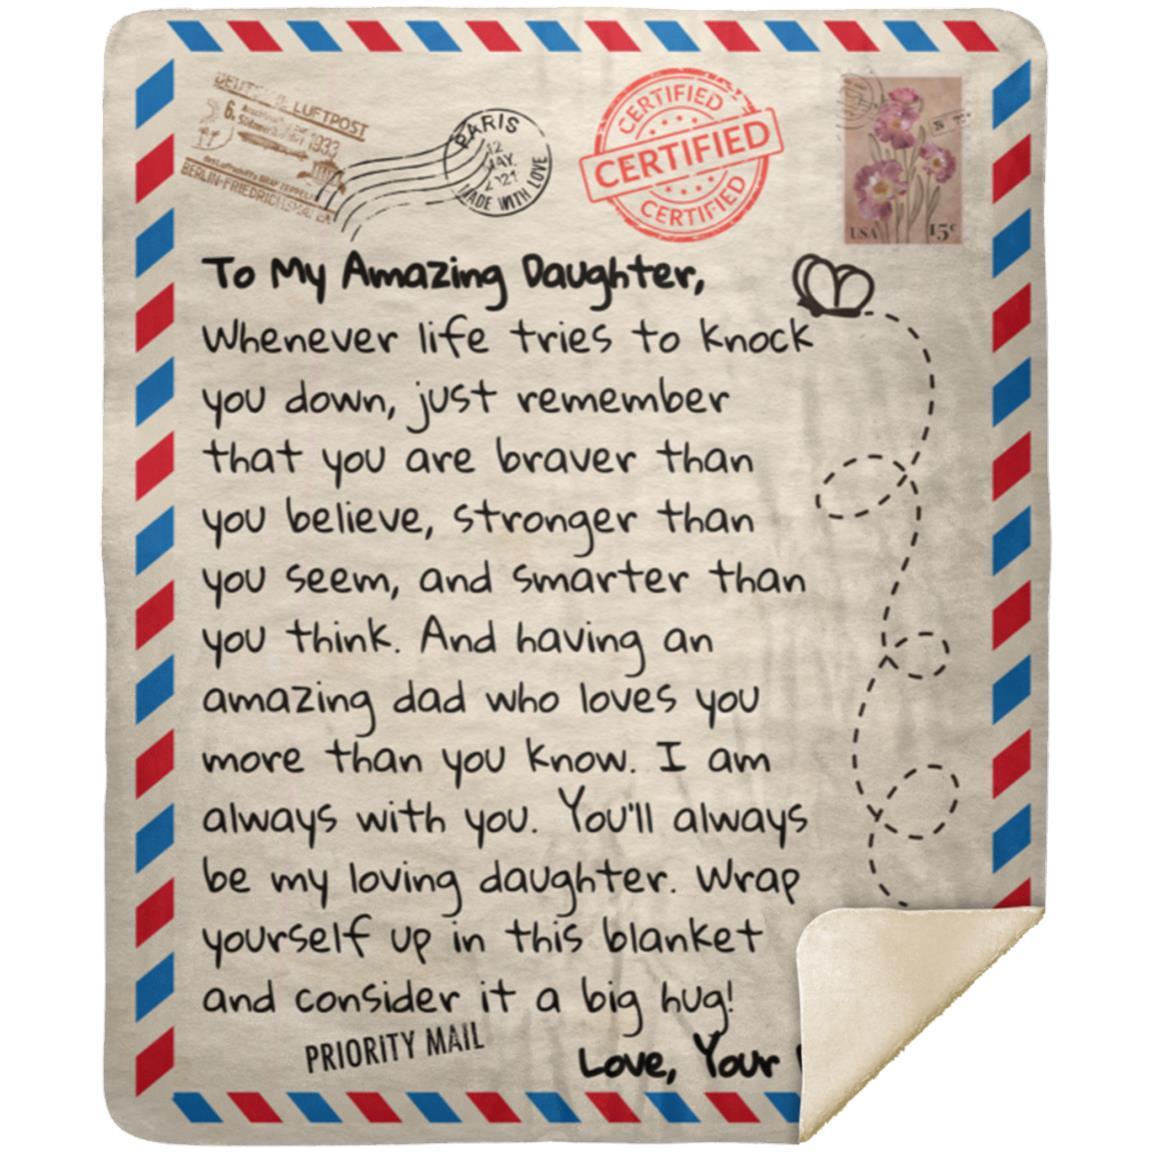 DEUTSCHE LUFTPOST
6.
1933
BERLIN-FRIEDRICHSHAFEN
PARIS
12
MAY,
2021
MADE WITH LOVE
CERTIFIED
CERTIFIED
CERTIFIED
USA 15c
To My Amazing Daughter,
Whenever life tries to knock
you down, just remember
that you are braver than
you believe, stronger than
you seem, and smarter than
you think. And having an
amazing dad who loves you
more than you know. I am
always with you. You'll always
be my loving daughter. Wrap
yourself up in this blanket
and consider it a big hug!
PRIORITY MAIL
Love, Your